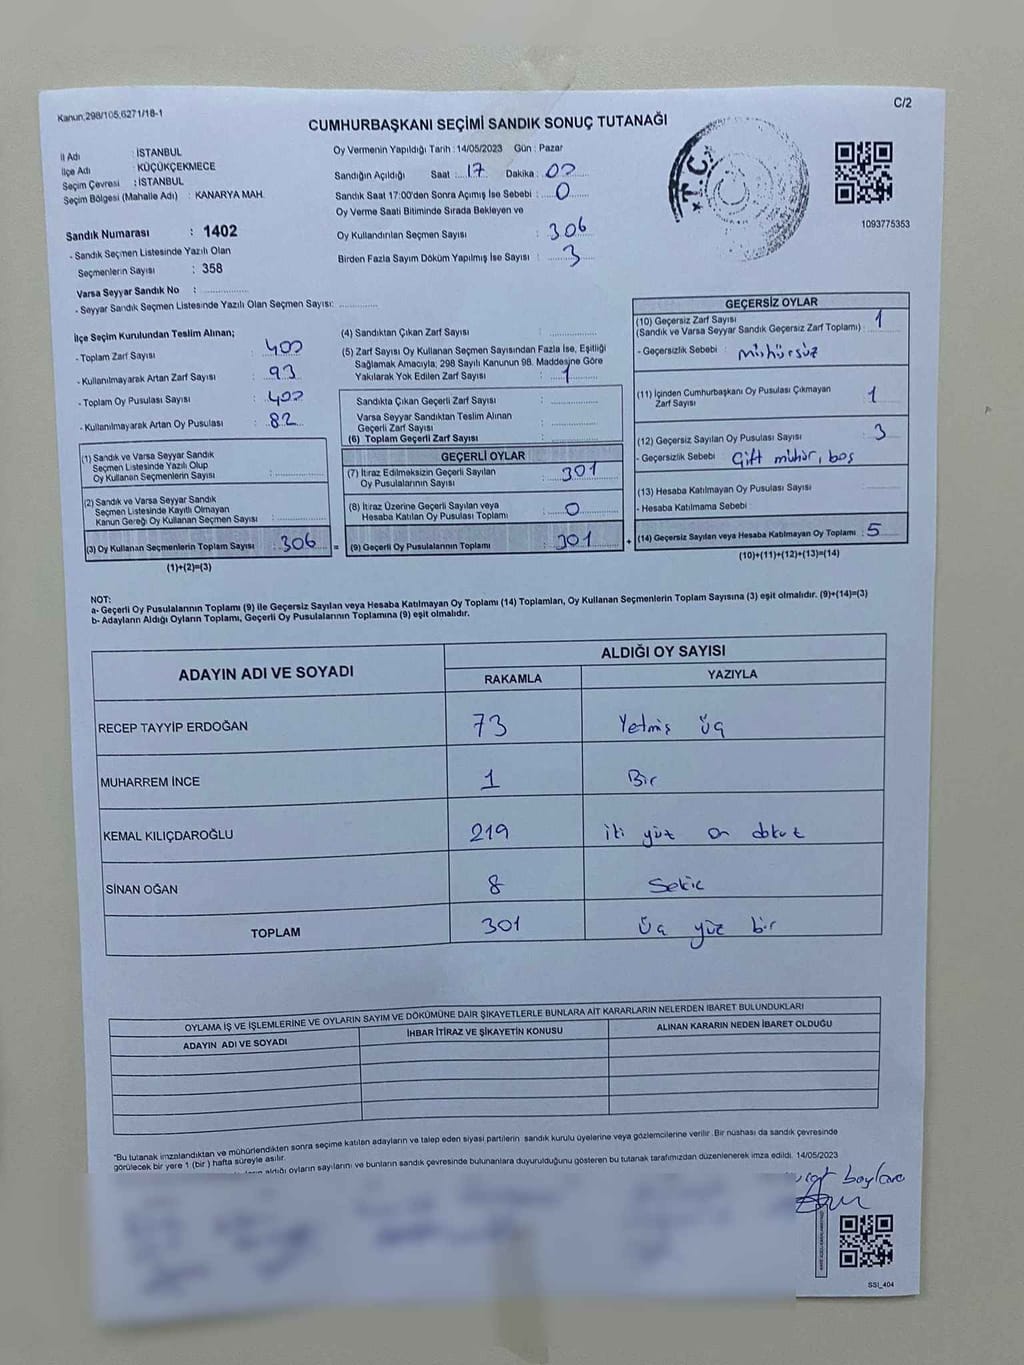 Kanun;298/105,6271/18-1
C/2
CUMHURBAŞKANI SEÇİMİ SANDIK SONUÇ TUTANAĞI
İl Adı : İSTANBUL
İlçe Adı : KÜÇÜKÇEKMECE
Seçim Çevresi : İSTANBUL
Seçim Bölgesi (Mahalle Adı) : KANARYA MAH.
Sandık Numarası : 1402
- Sandık Seçmen Listesinde Yazılı Olan
Seçmenlerin Sayısı : 358
Varsa Seyyar Sandık No : ................
- Seyyar Sandık Seçmen Listesinde Yazılı Olan Seçmen Sayısı: ..............
Oy Vermenin Yapıldığı Tarih : 14/05/2023 Gün : Pazar
Sandığın Açıldığı Saat : 17 Dakika : 00
Sandık Saat 17:00'den Sonra Açımış İse Sebebi : 0
Oy Verme Saati Bitiminde Sırada Bekleyen ve
Oy Kullandırılan Seçmen Sayısı : 306
Birden Fazla Sayım Döküm Yapılmış İse Sayısı : 3
T.C.
1093775353
İlçe Seçim Kurulundan Teslim Alınan;
- Toplam Zarf Sayısı : 400
- Kullanılmayarak Artan Zarf Sayısı : 93
- Toplam Oy Pusulası Sayısı : 400
- Kullanılmayarak Artan Oy Pusulası : 82
(1) Sandık ve Varsa Seyyar Sandık
Seçmen Listesinde Yazılı Olup
Oy Kullanan Seçmenlerin Sayısı :
(2) Sandık ve Varsa Seyyar Sandık
Seçmen Listesinde Kayıtlı Olmayan
Kanun Gereği Oy Kullanan Seçmen Sayısı :
(3) Oy Kullanan Seçmenlerin Toplam Sayısı : 306 =
(1)+(2)=(3)
(4) Sandıktan Çıkan Zarf Sayısı :
(5) Zarf Sayısı Oy Kullanan Seçmen Sayısından Fazla İse, Eşitliği
Sağlamak Amacıyla; 298 Sayılı Kanunun 98. Maddesine Göre
Yakılarak Yok Edilen Zarf Sayısı : 1
Sandıkta Çıkan Geçerli Zarf Sayısı :
Varsa Seyyar Sandıktan Teslim Alınan
Geçerli Zarf Sayısı :
(6) Toplam Geçerli Zarf Sayısı :
GEÇERLİ OYLAR
(7) İtiraz Edilmeksizin Geçerli Sayılan
Oy Pusulalarının Sayısı : 301
(8) İtiraz Üzerine Geçerli Sayılan veya
Hesaba Katılan Oy Pusulası Toplamı : 0
(9) Geçerli Oy Pusulalarının Toplamı : 301 +
GEÇERSİZ OYLAR
(10) Geçersiz Zarf Sayısı
(Sandık ve Varsa Seyyar Sandık Geçersiz Zarf Toplamı) : 1
- Geçersizlik Sebebi : mühürsüz
(11) İçinden Cumhurbaşkanı Oy Pusulası Çıkmayan
Zarf Sayısı : 1
(12) Geçersiz Sayılan Oy Pusulası Sayısı : 3
- Geçersizlik Sebebi Çift mühür, boş
(13) Hesaba Katılmayan Oy Pusulası Sayısı
- Hesaba Katılmama Sebebi :
(14) Geçersiz Sayılan veya Hesaba Katılmayan Oy Toplamı : 5
(10)+(11)+(12)+(13)=(14)
NOT:
a- Geçerli Oy Pusulalarının Toplamı (9) ile Geçersiz Sayılan veya Hesaba Katılmayan Oy Toplamı (14) Toplamları, Oy Kullanan Seçmenlerin Toplam Sayısına (3) eşit olmalıdır. (9)+(14)=(3)
b- Adayların Aldığı Oyların Toplamı, Geçerli Oy Pusulalarının Toplamına (9) eşit olmalıdır.
ADAYIN ADI VE SOYADI ALDIĞI OY SAYISI
RAKAMLA YAZIYLA
RECEP TAYYİP ERDOĞAN 73 Yetmiş üç
MUHARREM İNCE 1 Bir
KEMAL KILIÇDAROĞLU 219 iki yüz on dokuz
SİNAN OĞAN 8 Sekiz
TOPLAM 301 Üç yüz bir
OYLAMA İŞ VE İŞLEMLERİNE VE OYLARIN SAYIM VE DÖKÜMÜNE DAİR ŞİKAYETLERLE BUNLARA AİT KARARLARIN NELERDEN İBARET BULUNDUKLARI
ADAYIN ADI VE SOYADI İHBAR İTİRAZ VE ŞİKAYETİN KONUSU ALINAN KARARIN NEDEN İBARET OLDUĞU
*Bu tutanak imzalandıktan ve mühürlendikten sonra seçime katılan adayların ve talep eden siyasi partilerin sandık kurulu üyelerine veya gözlemcilerine verilir. Bir nüshası da sandık çevresinde
görülecek bir yere 1 (bir) hafta süreyle asılır.
aldığı oyların sayılarını ve bunların sandık çevresinde bulunanlara duyurulduğunu gösteren bu tutanak tarafımızdan düzenlenerek imza edildi. 14/05/2023
SSI_404